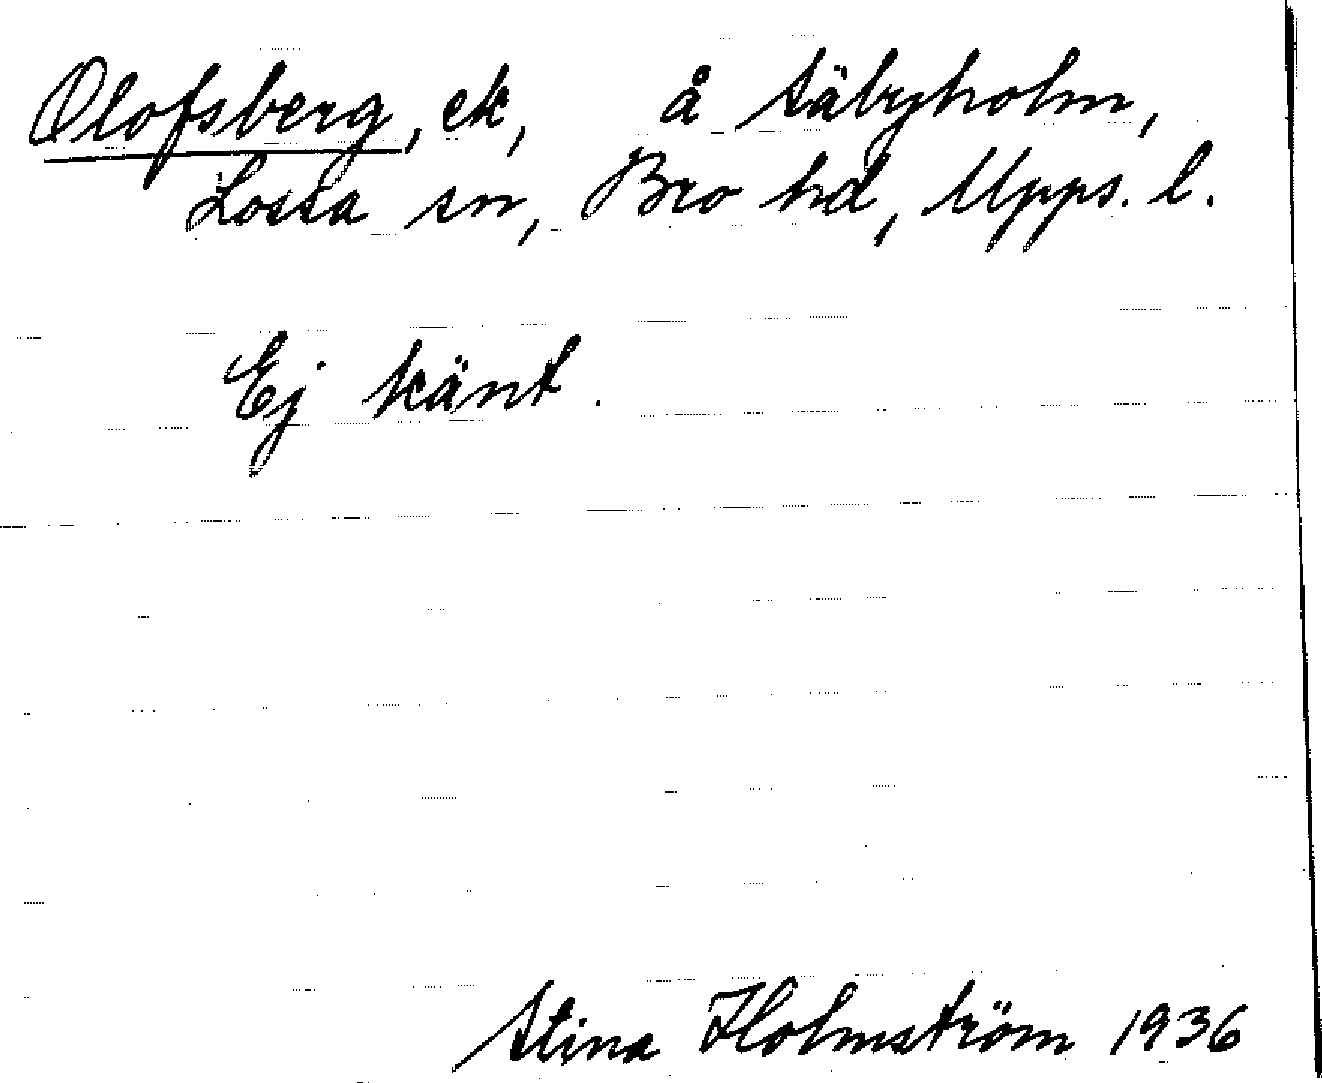 Olofsberg, ek, å Säbyholm,
Lossa sn, Bro hd, Upps. l.
Ej känt.
Stina Holmström 1936